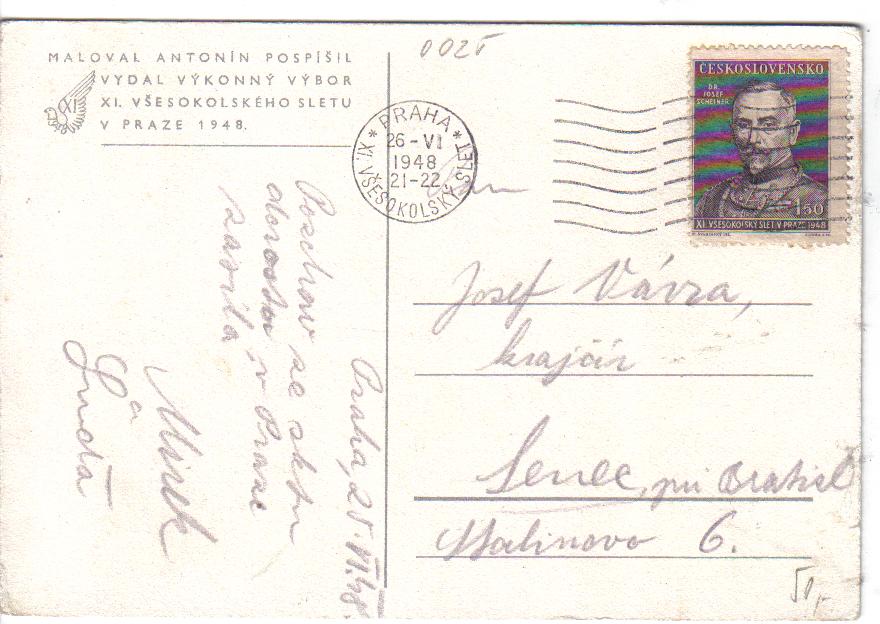 MALOVAL ANTONÍN POSPÍŠIL
VYDAL VÝKONNÝ VÝBOR
XI. VŠESOKOLSKÉHO SLETU
V PRAZE 1948.
XI
Praha, 25.VI.48.
Pozdrav ze sletu
dorostu v Praze
zasílá
Mirek
a
Gusta
0025
PRAHA
26-VI
1948
21-22
XI. VŠESOKOLSKÝ SLET
ČESKOSLOVENSKO
DR.
JOSEF
SCHEINER
1.50
XI. VŠESOKOLSKÝ SLET V PRAZE 1948
Pan
Josef Vávra,
krajčír
Senec, pri Bratisl
Malinovo 6.
50,-